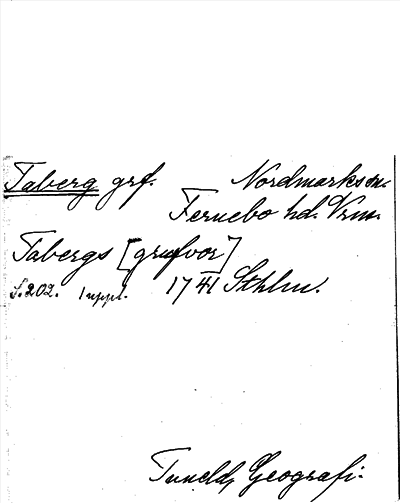 Taberg grf. Nordmarks sn.
Fernebo hd. Vrm.
Tabergs [grufvor]
S. 202. 1 uppl. 1741 Sthlm.
Tuneld, Geografi.